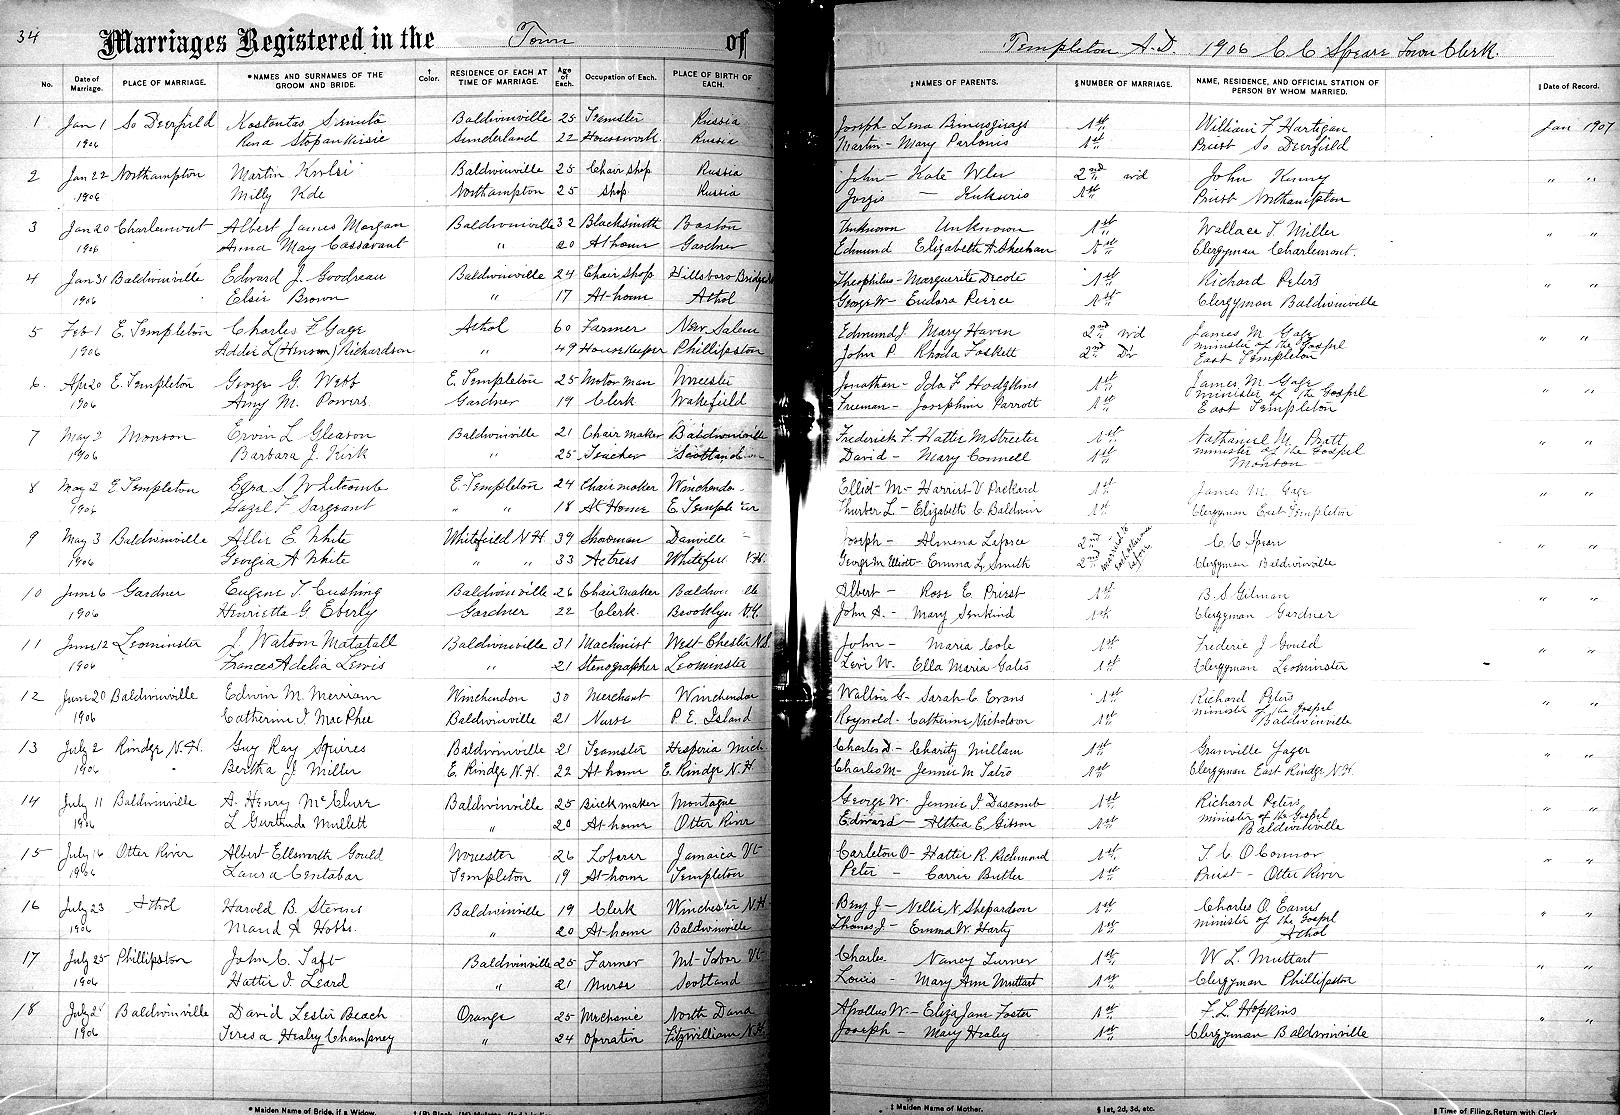 34
Marriages Registered in the Town of
Templeton A.D. 1906 C C Speare Town Clerk.
No.
Date of Marriage.
PLACE OF MARRIAGE.
*NAMES AND SURNAMES OF THE GROOM AND BRIDE.
† Color.
RESIDENCE OF EACH AT TIME OF MARRIAGE.
Age of Each.
Occupation of Each.
PLACE OF BIRTH OF EACH.
‡NAMES OF PARENTS.
§NUMBER OF MARRIAGE.
NAME, RESIDENCE, AND OFFICIAL STATION OF PERSON BY WHOM MARRIED.
‖Date of Record.
1 Jan 1 So Deerfield Baldwinville 25 Teamster Russia Joseph - Lena 1st William F Hartigan Jan 1907
1906 Rena Sunderland 22 Housework. Russia Martin - Mary 1st Priest So Deerfield
2 Jan 22 Northampton Martin Baldwinville 25 Chair shop Russia John - Kate 2nd wd John Kenny " "
1906 Milly Kde Northampton 25 shop Russia 1st Priest Northampton
3 Jan 20 Charlemont Albert James Morgan Baldwinville 32 Blacksmith Boston Unknown Unknown 1st Wallace T Miller " "
1906 Anna May Cassavant " 20 At home Gardner Edmund Elizabeth A Sheehan 1st Clergyman Charlemont.
4 Jan 31 Baldwinville Edward J. Goodreau Baldwinville 24 Chair shop Hillsboro Bridge Theophilus - Marguerite Decote 1st Richard Peters " "
1906 Elsie Brown " 17 At home Athol George W - Eudora Pierce 1st Clergyman Baldwinville
5 Feb 1 E. Templeton Charles F Gage Athol 60 Farmer New Salem Edmund J Mary Haven 2nd wd James M Gage " "
1906 Addie L (Henson) Richardson " 49 Housekeeper Phillipston John P. Rhoda Foskett 2nd Dv minister of the Gospel
East Templeton
6. Apr 20 E. Templeton George G. Webb E. Templeton 25 Motorman Worcester Jonathan - Ida F Hodgkins 1st James M Gage " "
1906 Amy M. Powers Gardner 19 Clerk Wakefield Freeman - Josephine Parrott 1st minister of the Gospel
East Templeton
7 May 2 Monson Ervin L Gleason Baldwinville 21 Chair maker Baldwinville Frederick F. Hattie M Streeter 1st Nathaniel M. Pratt " "
1906 Barbara J. Kirk " 25 Teacher Scotland David - Mary Connell 1st minister of the Gospel
Monson
8 May 2 E Templeton Ezra S Whitcomb E. Templeton 24 Chair maker Winchendon Elliot M - Harriet V Packard 1st James M Gage " "
1906 Hazel F Sargeant " " 18 At Home E Templeton Thurber L - Elizabeth C. Baldwin 1st Clergyman East Templeton
9 May 3 Baldwinville Allie E White Whitefield N.H. 39 Showman Danville Joseph - Almena 2nd married to each other once before C C Spear " "
1906 Georgia A White " " 33 Actress Whitefield N.H. George M Elliott - Emma L Smith 2nd Clergyman Baldwinville
10 June 6 Gardner Eugene T. Cushing Baldwinville 26 Chair maker Baldwinville Albert - Rose E Priest 1st B S Gilman " "
1906 Henrietta G. Eberly Gardner 22 Clerk Brooklyn N.Y. John A. - Mary Senkind 1st Clergyman Gardner
11 June 12 Leominster J Watson Matatall Baldwinville 31 Machinist West Chester N.S. John - Maria Cole 1st Frederic J Gould " "
1906 Frances Adelia Lewis " 21 Stenographer Leominster Levi W. Ella Maria Gates 1st Clergyman Leominster
12 June 20 Baldwinville Edwin M. Merriam Winchendon 30 Merchant Winchendon Walter G - Sarah C. Evans 1st Richard Peters " "
1906 Catherine I. MacPhee Baldwinville 21 Nurse P. E. Island Reynold - Catherine Nicholson 1st minister of the Gospel
Baldwinville
13 July 2 Rindge N.H. Guy Ray Squires Baldwinville 21 Teamster Hesperia Mich Charles D - Charity Millam 1st Granville Yager " "
1906 Bertha J. Miller E. Rindge N.H. 22 At home E. Rindge N.H Charles M - Jennie M Tatro 1st Clergyman East Rindge N.H.
14 July 11 Baldwinville A. Henry McClure Baldwinville 25 Brickmaker Montague George W. Jennie I Dascomb 1st Richard Peters " "
1906 L Gertrude Mullett " 20 At home Otter River Edward - Althea E Gibson 1st minister of the Gospel
Baldwinville
15 July 16 Otter River Albert Ellsworth Gould Worcester 26 Laborer Jamaica Vt Carleton O - Hattie R. Richmond 1st T C O'Connor " "
1906 Laura Centabar Templeton 19 At home Templeton Peter - Carrie Butler 1st Priest - Otter River
16 July 23 Athol Harold B. Stevens Baldwinville 19 Clerk Winchester N.H. Benj J - Nellie N. Shepardson 1st Charles O. Eames " "
1906 Maud A Hobbs. " 20 At home Baldwinville Thomas J - Emma W. Harty 1st minister of the Gospel
Athol
17 July 25 Phillipston John C. Taft Baldwinville 25 Farmer Mt Tabor Vt Charles Nancy Turner 1st W L Muttart " "
1906 Hattie I. Leard " 21 Nurse Scotland Louis - Mary Ann Muttart 1st Clergyman Phillipston
18 July 25 Baldwinville David Lester Beach Orange 25 Mechanic North Dana Apollus W - Eliza Jane Foster 1st F. L. Hopkins " "
1906 Teresa Healey Champney " 24 Operative Fitzwilliam N.H. Joseph - Mary Healey 1st Clergyman Baldwinville
* Maiden Name of Bride, if a Widow.
‡ Maiden Name of Mother.
§ 1st, 2d, 3d, etc.
‖ Time of Filing, Return with Clerk